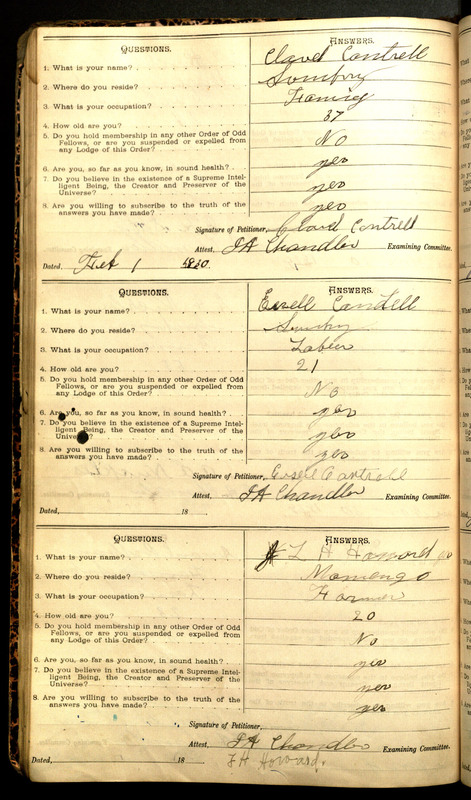 QUESTIONS. ANSWERS.
1. What is your name? Claud Cantrell
2. Where do you reside?
3. What is your occupation?
4. How old are you? 37
5. Do you hold membership in any other Order of Odd
Fellows, or are you suspended or expelled from
any Lodge of this Order? No
6. Are you, so far as you know, in sound health? yes
7. Do you believe in the existence of a Supreme Intel-
ligent Being, the Creator and Preserver of the
Universe? yes
8. Are you willing to subscribe to the truth of the
answers you have made? yes
Signature of Petitioner, Cloud Cantrell
Attest, J A Chandler Examining Committee.
Dated, Feb 1
QUESTIONS. ANSWERS.
1. What is your name? Cantrell
2. Where do you reside?
3. What is your occupation? Labier
4. How old are you? 21
5. Do you hold membership in any other Order of Odd
Fellows, or are you suspended or expelled from
any Lodge of this Order? No
6. Are you, so far as you know, in sound health? yes
7. Do you believe in the existence of a Supreme Intel-
ligent Being, the Creator and Preserver of the
Universe? yes
8. Are you willing to subscribe to the truth of the
answers you have made? yes
Signature of Petitioner, Cantrell
Attest, J A Chandler Examining Committee.
Dated, 18
QUESTIONS. ANSWERS.
1. What is your name? L H
2. Where do you reside? Mamengo
3. What is your occupation? Farmer
4. How old are you? 20
5. Do you hold membership in any other Order of Odd
Fellows, or are you suspended or expelled from
any Lodge of this Order? No
6. Are you, so far as you know, in sound health? yes
7. Do you believe in the existence of a Supreme Intel-
ligent Being, the Creator and Preserver of the
Universe? yes
8. Are you willing to subscribe to the truth of the
answers you have made? yes
Signature of Petitioner,
Attest, J A Chandler Examining Committee.
Dated, 18 L H Howard.